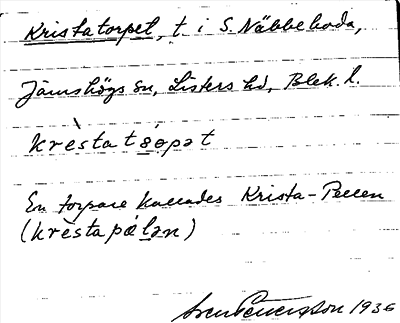 Kristatorpet, t. i S. Näbbeboda,
Jämshögs sn, Listers hd, Blek. l.
krèstatɔ́rpət
En torpare kallades Krista-Pellen
(krèstapǽlən)
Sven Pettersson 1936